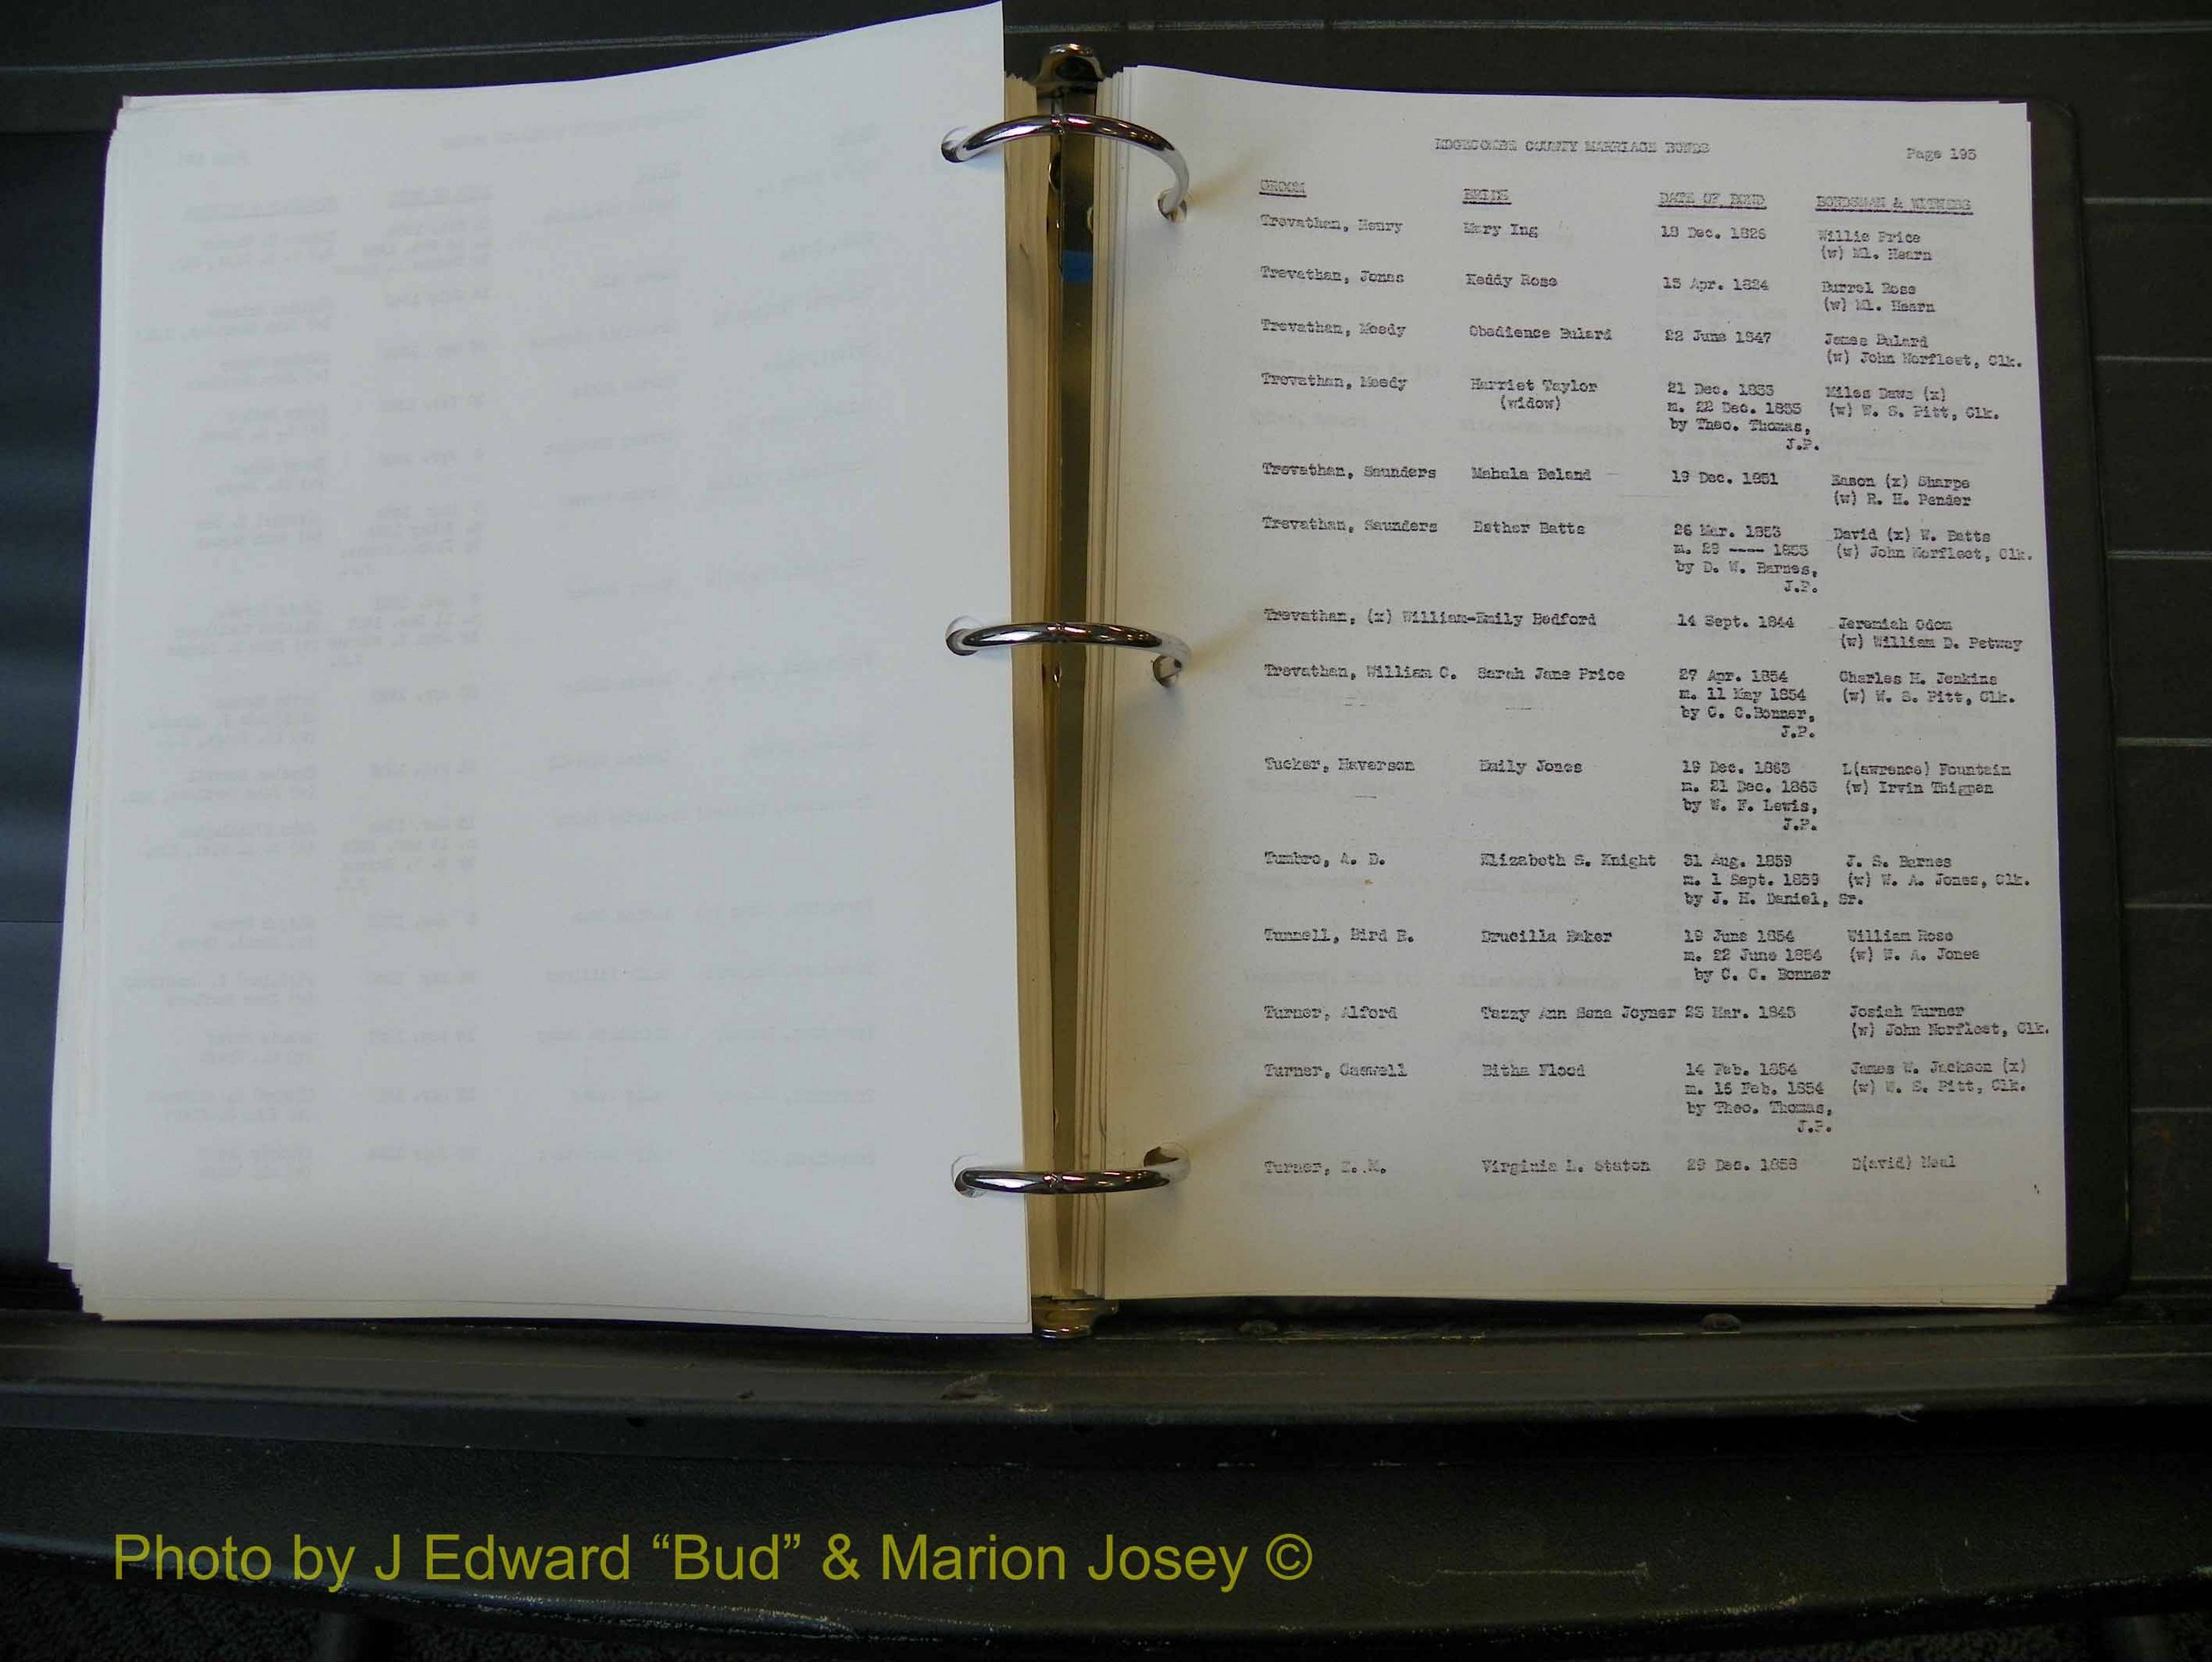 EDGECOMBE COUNTY MARRIAGE BONDS Page 195
GROOM BRIDE DATE OF BOND BONDSMAN & WITNESS
Trevathan, Henry Mary Ing 18 Dec. 1826 Willie Price
(w) Ml. Hearn
Trevathan, Jonas Keddy Rose 15 Apr. 1824 Burrel Rose
(w) Ml. Hearn
Trevathan, Moody Obedience Bulard 22 June 1847 James Bulard
(w) John Norfleet, Clk.
Trevathan, Moody Harriet Taylor 21 Dec. Miles Daws (x)
(widow) m. 22 Dec. (w) W. S. Pitt, Clk.
by Theo. Thomas,
J.P.
Trevathan, Saunders Mahala Beland 19 Dec. 1851 Eason (x) Sharpe
(w) R. H. Pender
Trevathan, Saunders Esther Batts 26 Mar. 1853 David (x) W. Batts
m. 29 ---- 1853 (w) John Norfleet, Clk.
by D. W. Barnes,
J.P.
Trevathan, (x) William-Emily Bedford 14 Sept. 1844 Jeremiah Odom
(w) William D. Petway
Trevathan, William C. Sarah Jane Price 27 Apr. 1854 Charles H. Jenkins
m. 11 May 1854 (w) W. S. Pitt, Clk.
by C. C.Bonner,
J.P.
Tucker, Haverson Emily Jones 19 Dec. 1863 L(awrence) Fountain
m. 21 Dec. 1863 (w) Irvin Thigpen
by W. F. Lewis,
J.P.
Tumbro, A. D. Elizabeth S. Knight 31 Aug. 1859 J. S. Barnes
m. 1 Sept. 1859 (w) W. A. Jones, Clk.
by J. H. Daniel, Sr.
Tunnell, Bird B. Drucilla Baker 19 June 1854 William Rose
m. 22 June 1854 (w) W. A. Jones
by C. C. Bonner
Turner, Alford Tazzy Ann Sena Joyner Mar. 1845 Josiah Turner
(w) John Norfleet, Clk.
Turner, Caswell Bitha Flood 14 Feb. 1854 James W. Jackson (x)
m. 15 Feb. 1854 (w) W. S. Pitt, Clk.
by Theo. Thomas,
J.P.
Turner, Virginia L. Staton 29 Dec. 1858 D(avid) Neal
Photo by J Edward “Bud” & Marion Josey ©